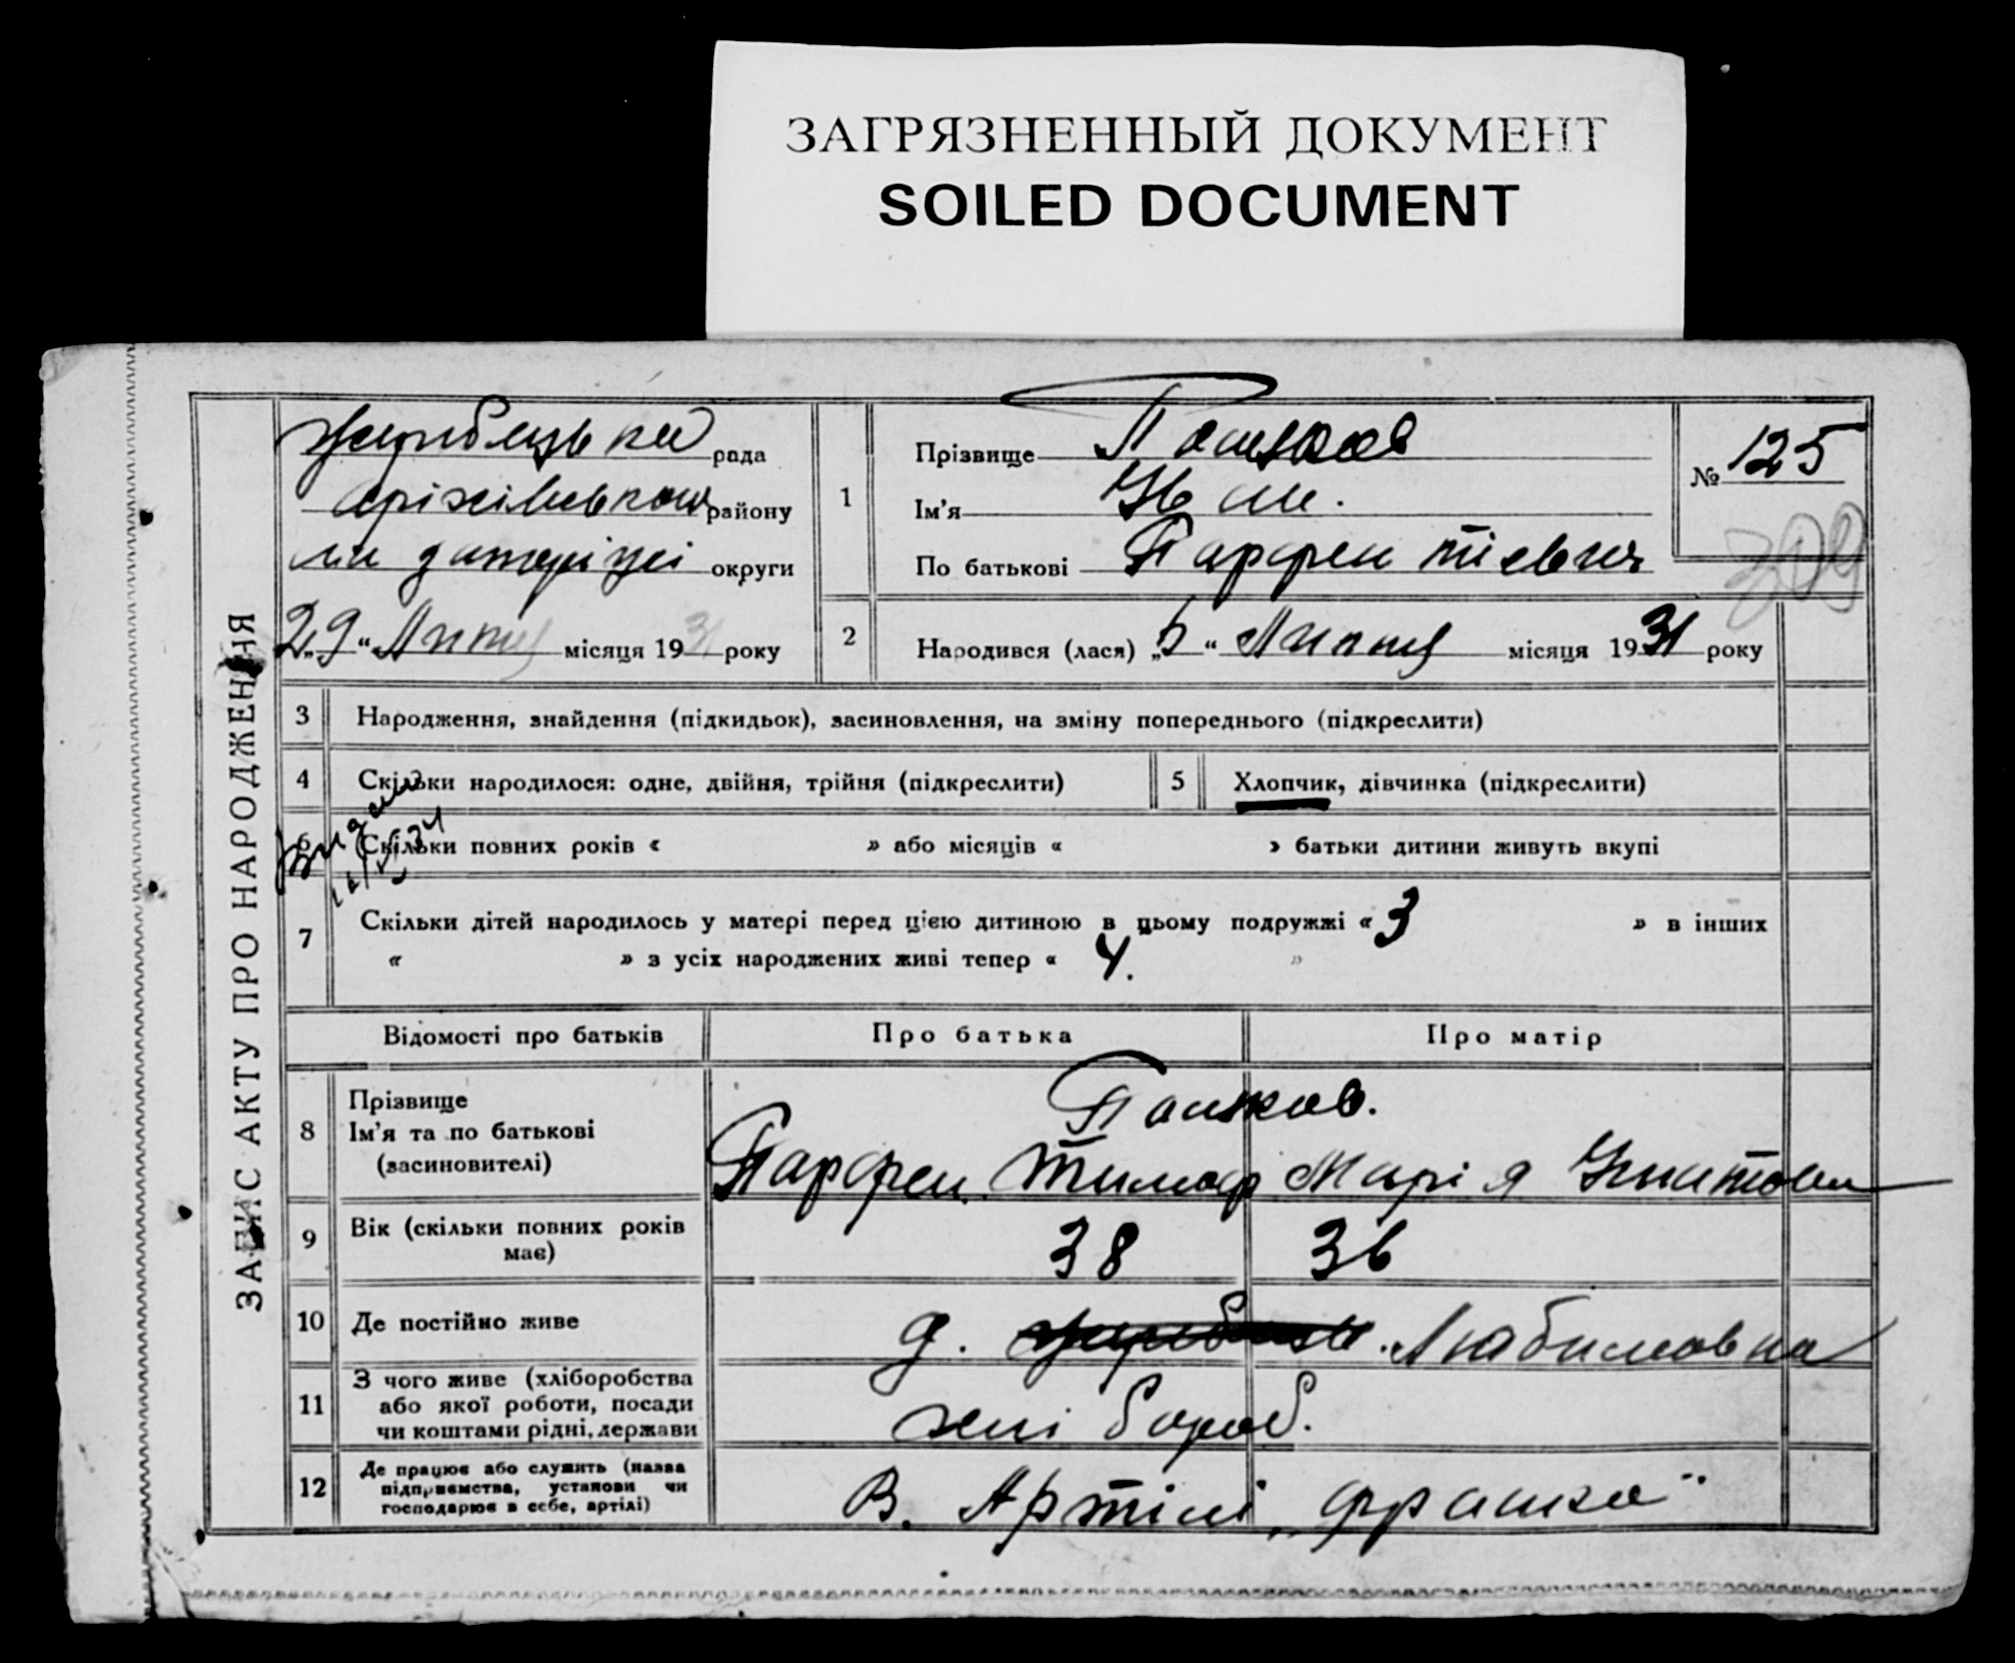 ЗАГРЯЗНЕННЫЙ ДОКУМЕНТ
SOILED DOCUMENT
ЗАПИС АКТУ ПРО НАРОДЖЕННЯ
рада
району
округи
„29“ Липня місяця 1931 року
1
Прізвище
Ім'я
По батькові Парфентієвич
№ 125
2
Народився (лася) „5“ Липня місяця 1931 року
3 Народження, знайдення (підкидьок), засиновлення, на зміну попереднього (підкреслити)
4 Скільки народилося: одне, двійня, трійня (підкреслити)
5 Хлопчик, дівчинка (підкреслити)
6 Скільки повних років « » або місяців « » батьки дитини живуть вкупі
7 Скільки дітей народилось у матері перед цією дитиною в цьому подружжі « 3 » в інших
« » з усіх народжених живі тепер « 4. »
Відомості про батьків Про батька Про матір
8 Прізвище
Ім'я та по батькові
(засиновителі)
Парфен Тимоф Марія Игнатовн
9 Вік (скільки повних років
має)
38 36
10 Де постійно живе д. Любимовка
11 З чого живе (хліборобства
або якої роботи, посади
чи коштами рідні, держави
хлібороб.
12 Де працює або служить (назва
підприємства, установи чи
господарює в себе, артілі)
В. Артілі „Франка"